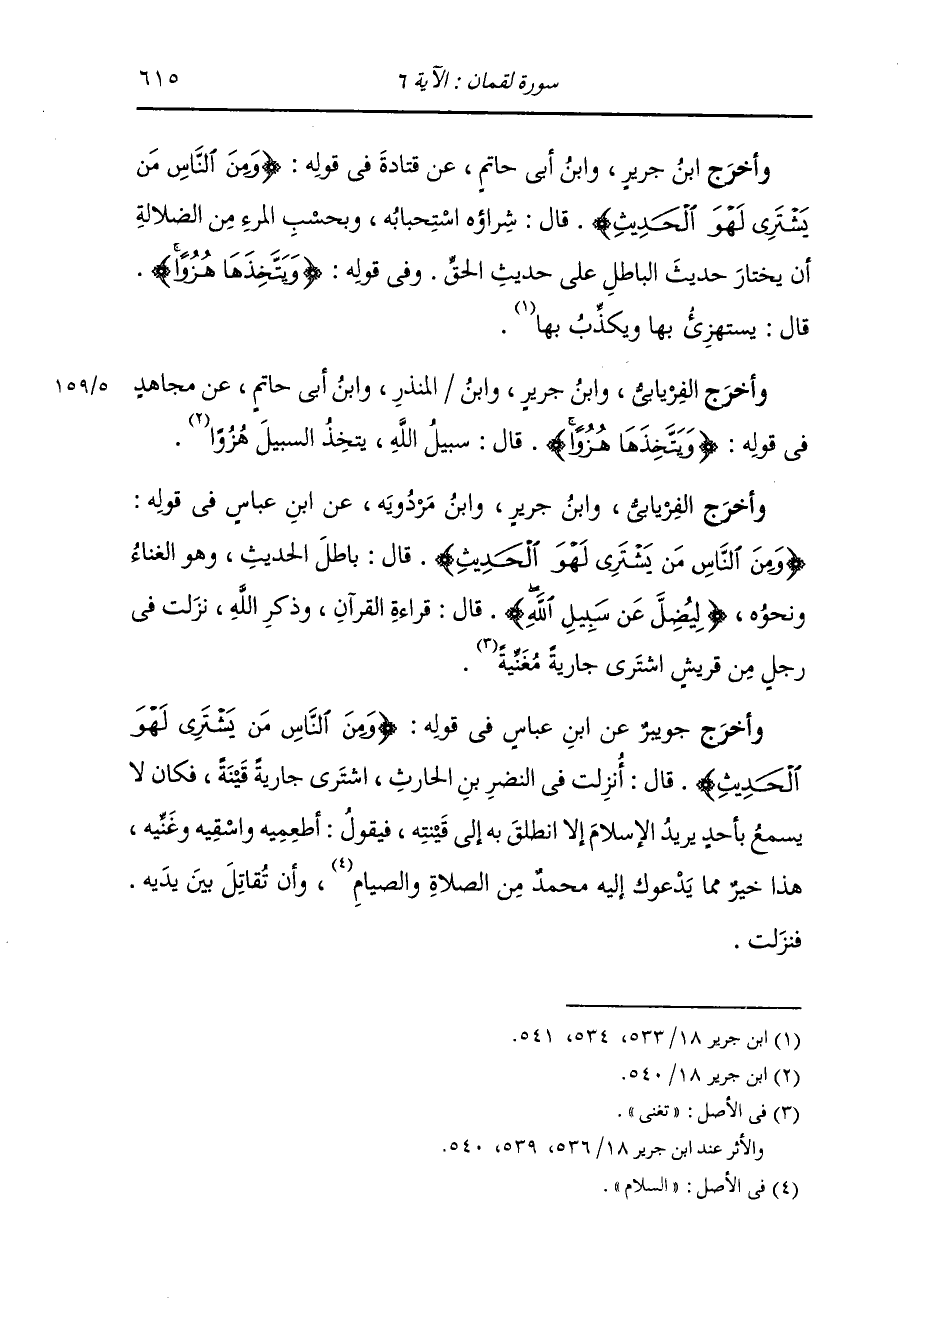 سورة لقمان : الآية ٦ ٦١٥
وأخرَج ابنُ جريرٍ ، وابنُ أبى حاتمٍ ، عن قتادةَ فى قولِه : ﴿وَمِنَ ٱلنَّاسِ مَن
يَشْتَرِى لَهْوَ ٱلْحَدِيثِ﴾ . قال : شِراؤه اسْتِحبابُه ، وبحسْبِ المرءِ مِن الضلالةِ
أن يختارَ حديثَ الباطلِ على حديثِ الحقِّ . وفى قولِه : ﴿وَيَتَّخِذَهَا هُزُوًاۚ﴾ .
قال : يستهزِئُ بها ويكذِّبُ بها(١) .
وأخرَج الفِرْيابىُّ ، وابنُ جريرٍ ، وابنُ / المنذرِ ، وابنُ أبى حاتمٍ ، عن مجاهدٍ ١٥٩/٥
فى قولِه : ﴿وَيَتَّخِذَهَا هُزُوًاۚ﴾ . قال : سبيلُ اللَّهِ ، يتخِذُ السبيلَ هُزُوًا(٢) .
وأخرَج الفِرْيابىُّ ، وابنُ جريرٍ ، وابنُ مَرْدُويَه ، عن ابنِ عباسٍ فى قولِه :
﴿وَمِنَ ٱلنَّاسِ مَن يَشْتَرِى لَهْوَ ٱلْحَدِيثِ﴾ . قال : باطلَ الحديثِ ، وهو الغناءُ
ونحوُه ، ﴿لِيُضِلَّ عَن سَبِيلِ ٱللَّهِۖ﴾ . قال : قراءةِ القرآنِ ، وذكرِ اللَّهِ ، نزَلت فى
رجلٍ مِن قريشٍ اشتَرى جاريةً مُغَنِّيةً(٣) .
وأخرَج جويبرٌ عن ابنِ عباسٍ فى قولِه : ﴿وَمِنَ ٱلنَّاسِ مَن يَشْتَرِى لَهْوَ
ٱلْحَدِيثِ﴾ . قال : أُنزِلت فى النضرِ بنِ الحارثِ ، اشتَرى جاريةً قَيْنَةً ، فكان لا
يسمعُ بأحدٍ يريدُ الإسلامَ إلا انطلقَ به إلى قَيْنتِه ، فيقولُ : أطعِميه واسْقِيه وغَنِّيه ،
هذا خيرٌ مما يَدْعوك إليه محمدٌ مِن الصلاةِ والصيامِ(٤) ، وأن تُقاتِلَ بينَ يدَيه .
فنزَلت .
(١) ابن جرير ١٨/ ٥٣٣، ٥٣٤، ٥٤١.
(٢) ابن جرير ١٨/ ٥٤٠.
(٣) فى الأصل : « تغنى » .
والأثر عند ابن جرير ١٨/ ٥٣٦، ٥٣٩، ٥٤٠.
(٤) فى الأصل : « السلام » .